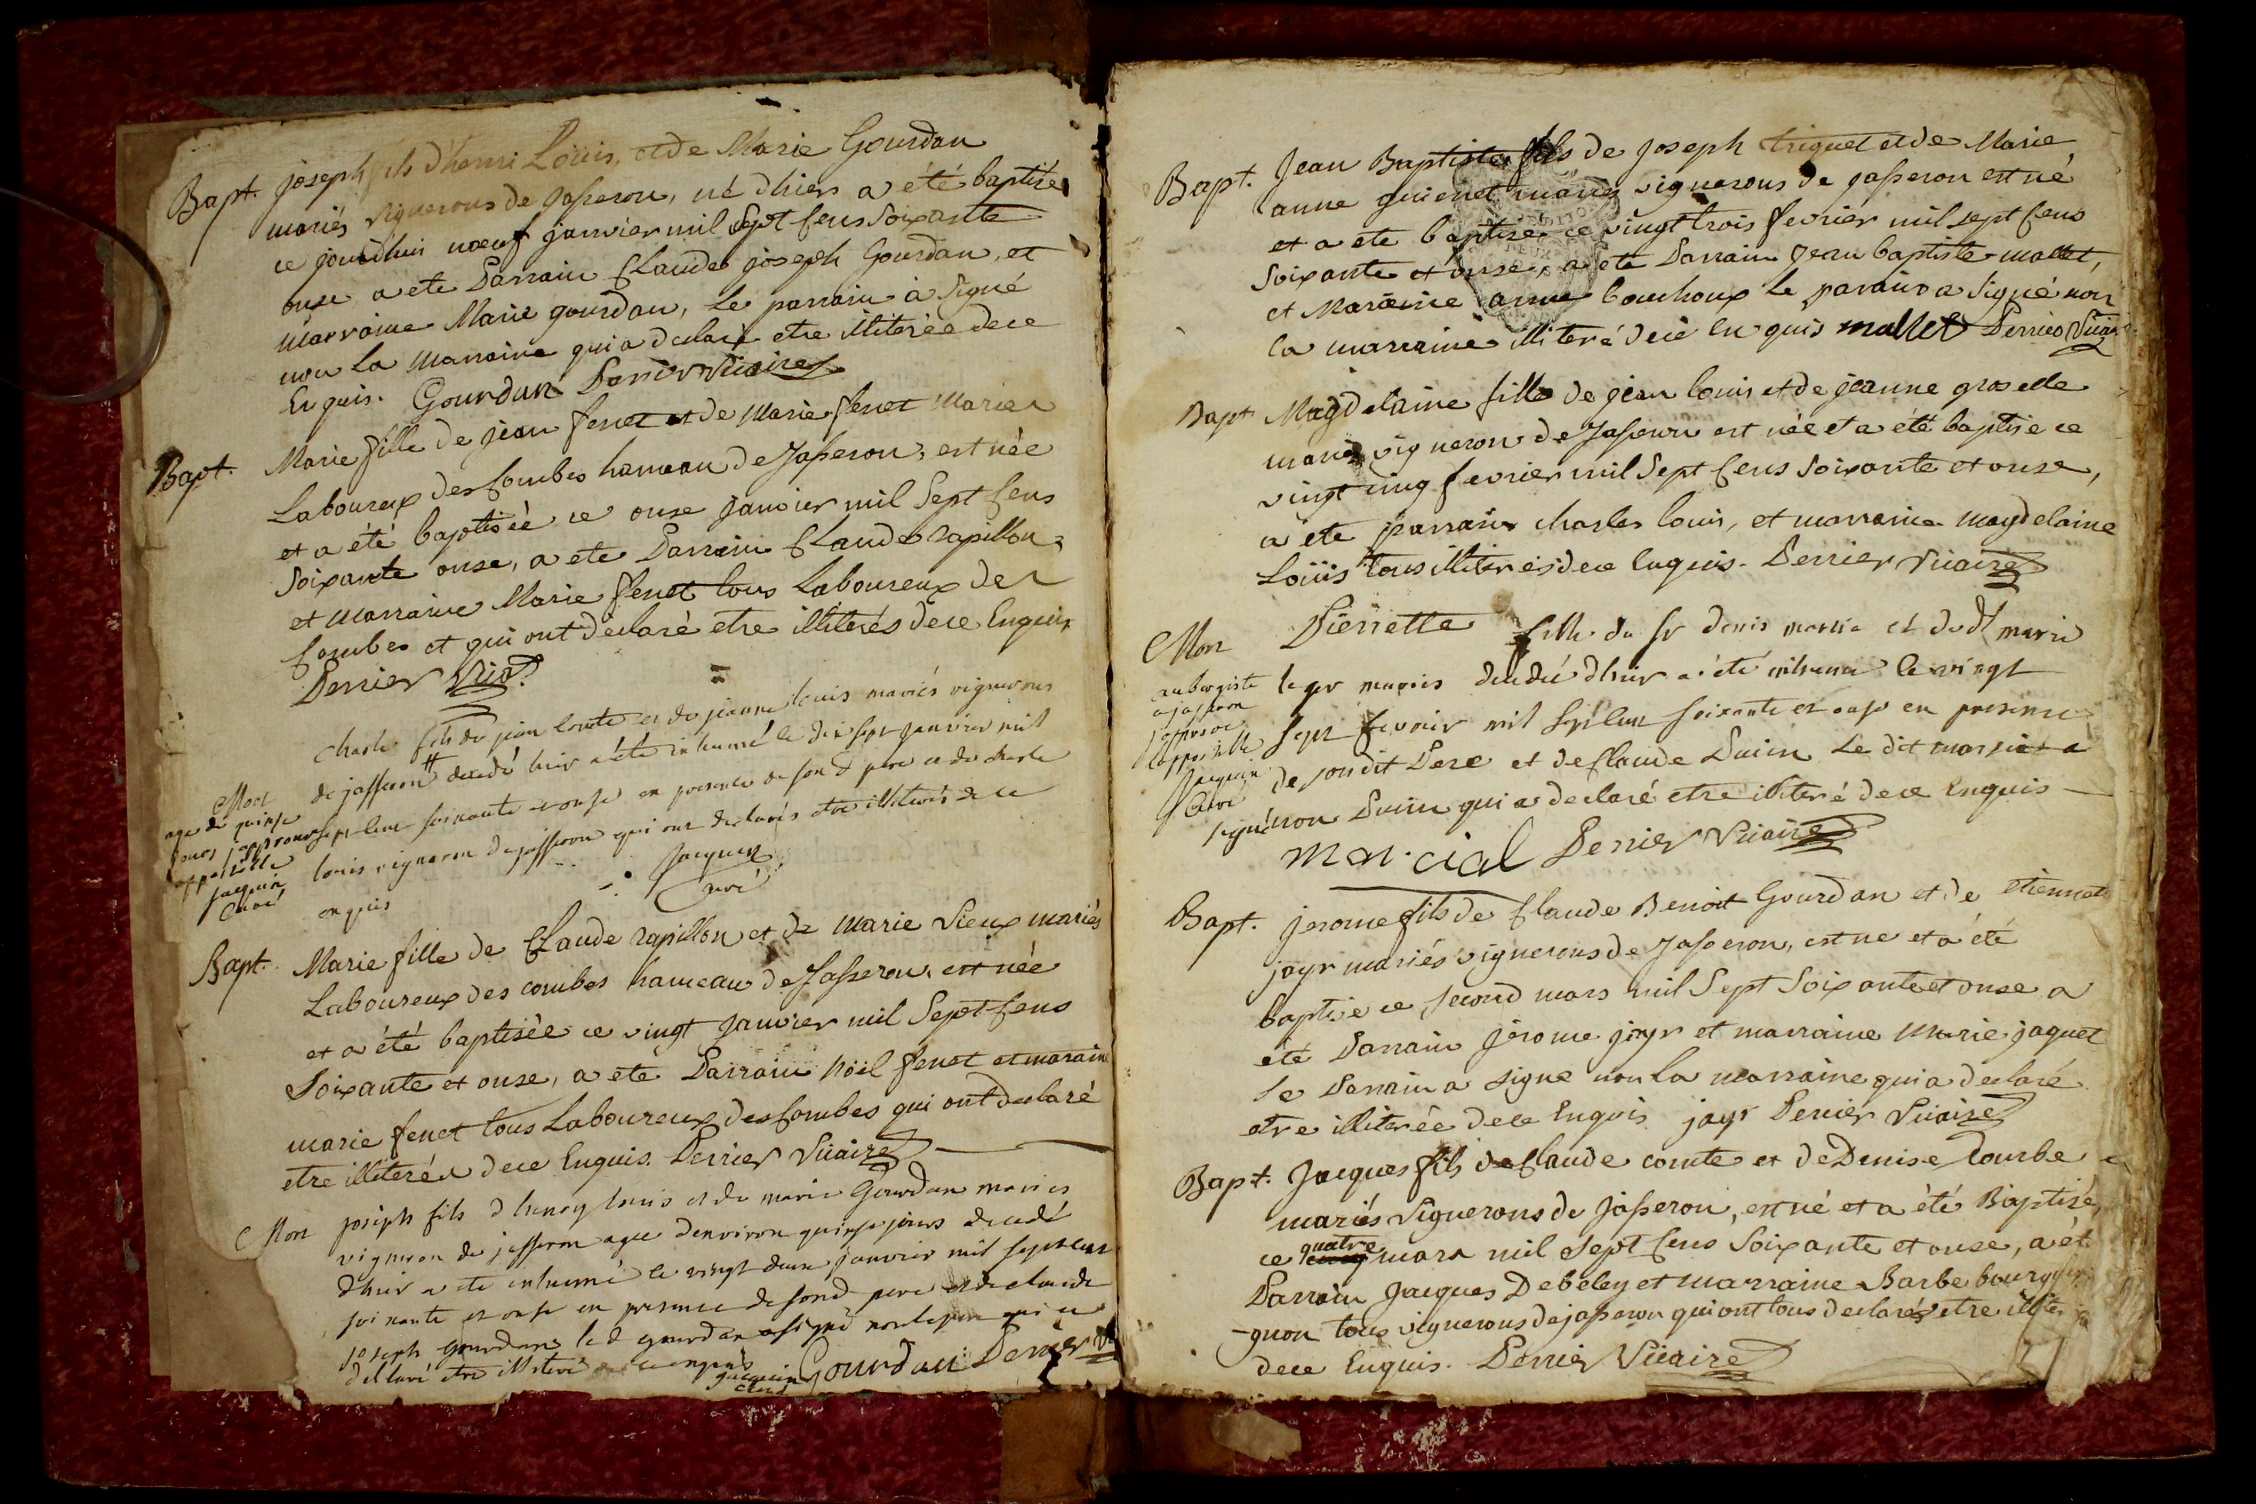 Bapt. joseph fils d'henri Loüis, et de Marie Gourdan
mariés vignerons de Jasseron, né d'hier a été baptisé
ce jourdhui nœuf janvier mil sept cens soixante
onse a ete Parrain Claude joseph Gourdan, et
marraine Marie gourdan, le parrain à signé
non la marraine qui a declaré etre illiterée de ce
Enquis. Gourdan Perrier Vicaire
Bapt. Marie fille de jean fenet et de Marie fenet mariés
Laboureux des Combes hameau de Jasseron, est née
et a été baptisée ce onse janvier mil sept cens
soixante onse, a ete Parrain Claude rapillon,
et marraine Marie fenet tous Laboureux des
Combes et qui ont declaré etre illiterés de ce Enquis
Perrier Vic.
charle fils de jean comte et de jeanne louis mariés vignerons
Mort de jasseron decedé hier a été inhumé le dix sept janvier mil
age de quinse sept cent soixante et onse en presence de son d pere et de charle
jours japprouve
appostille louis vigneron de jasseron qui ont declarés etre illiterés de ce
jacquin
curé enquis Jacquin
curé
Bapt. Marie fille de Claude rapillon et de Marie Vieux mariés
Laboureux des combes hameau de Jasseron, est née
et a été baptisée ce vingt Janvier mil Sept cens
Soixante et onse, a eté Parrain Nöel fenet et maraine
marie fenet tous Laboureux des Combes qui ont declaré
etre illiterés de ce Enquis. Perrier Vicaire
Mort joseph fils d henry louis et de marie Gourdan mariés
vigneron de jasseron age denviron quinse jours decedé
dhier a ete inhumé le vingt deux janvier mil sept cent
soixante et onse en presence de son d pere et de claude
joseph gourdan le d gourdan a signé non le pere qui a
declaré etre illiteré de ce enquis
jacquin curé Gourdan Perrier
Bapt. Jean Baptiste fils de Joseph triquet et de Marie
anne guienet mariés vignerons de jasseron est né
et a ete baptisé ce vingt trois fevrier mil sept cens
soixante et onse, a ete Parrain Jean baptiste mallet,
et Maraine anne bouchoux le parain a signé non
la marraine illiteré de ce enquis mallet Perrier Vicaire
Bapt Magdelaine fille de jean louis et de jeanne groselle
mariés vigneron de Jasseron est née et a été baptisée ce
vingt cinq fevrier mil sept cens soixante et onse,
a ete parrain charles louis, et marraine magdelaine
Loüis tous illiterés de ce enquis. Perrier Vicaire
Mort Pierrette fille du sr denis et de dl marie
aubergiste
a jasseron leger mariés decedé dhier a été inhumé le vingt
japprouve
lappostille sept fevrier mil sept cent soixante et onse en presence
Jacquin
curé de son dit Pere et de Claude Puvin Le dit a
signé non Puvin qui a declaré etre illiteré de ce Enquis
mar.cial Perrier Vicaire
Bapt. jerome fils de Claude Benoit Gourdan et de etiennet
jayr mariés vignerons de Jasseron, est ne et a été
baptisé ce second mars mil Sept Soixante et onse a
été Parrain jérome jayr et marraine Marie jaquet
le Parrain a signe non la marraine qui a declaré
etre illiterée de ce Enquis jayr Perrier Vicaire
Bapt. Jacques fils de Claude comte et de Denise Courbe
mariés vignerons de Jasseron, est né et a été Baptisé,
ce quatre mars mil Sept Cens Soixante et onse, a ét
Parrain Jacques Debeley et marraine Barbe bourgui
-gnon tous vignerons de jasseron qui ont tous declarés etre illiter
de ce Enquis. Perrier Vicaire